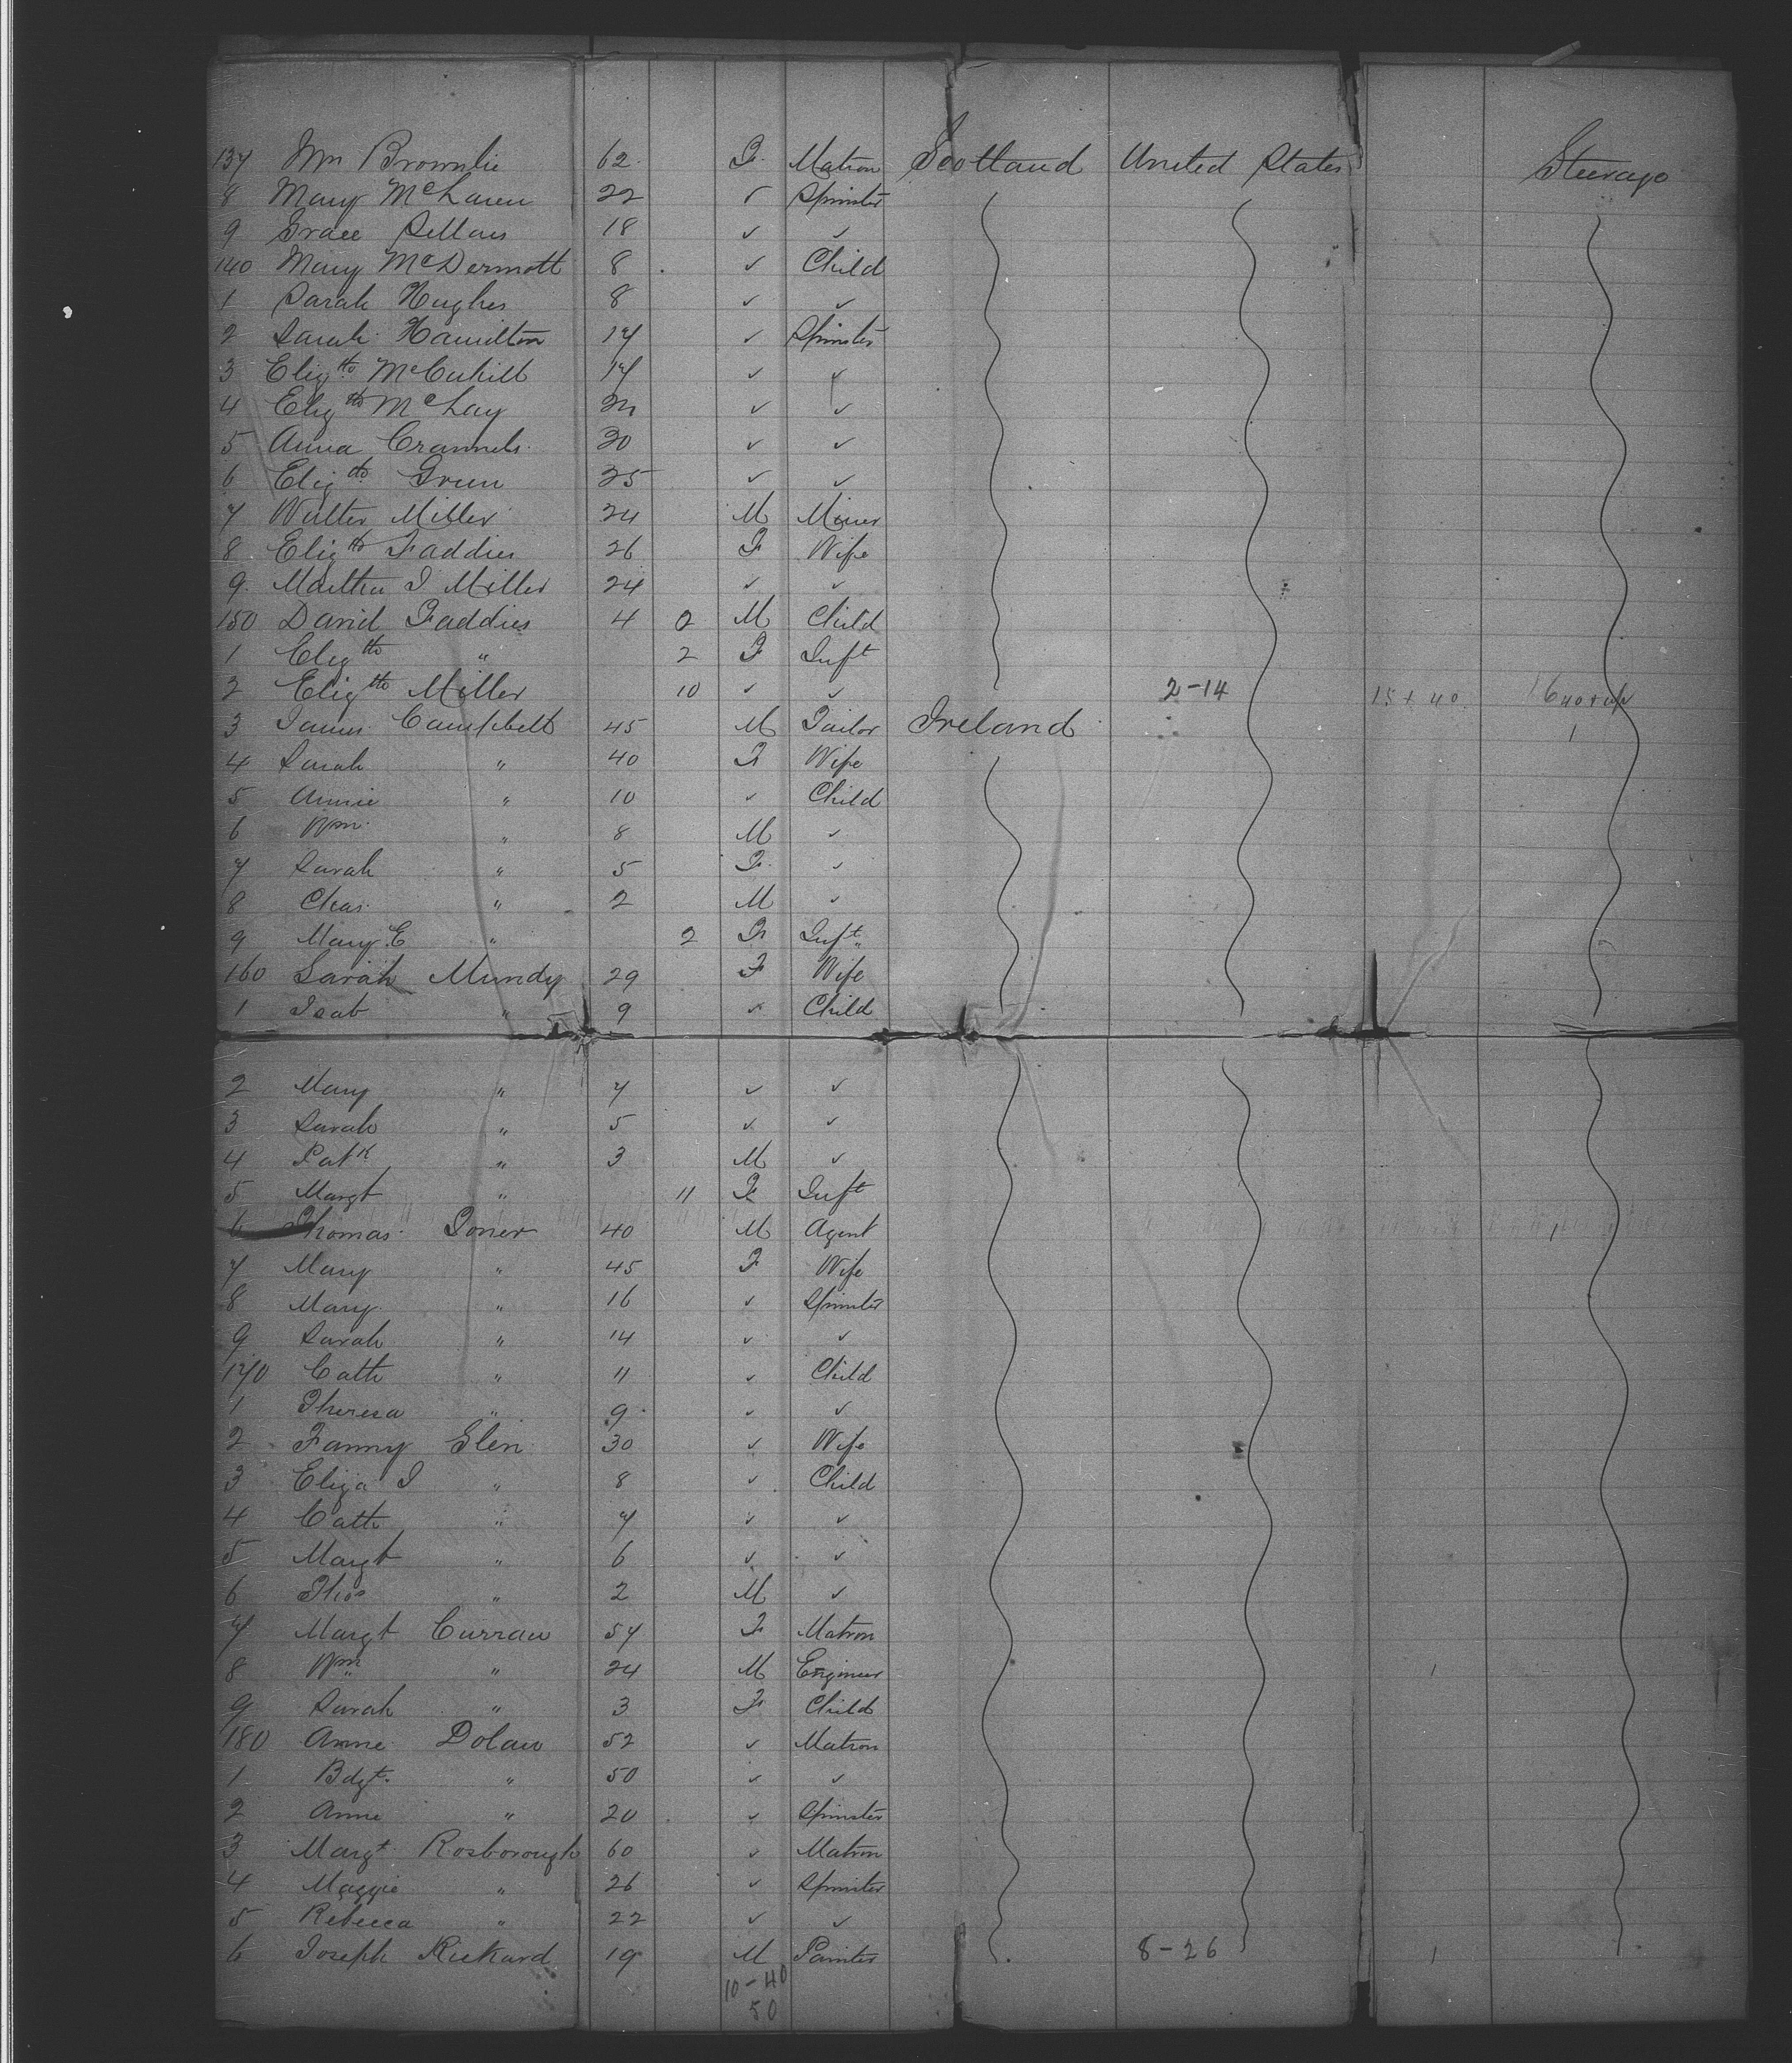 137 Wm Brownlie 62 F. Matron Scotland United States Steerage
8 Mary McLaren 22 " Spinster
9 Grace Sellars 18 " "
140 Mary McDermott 8 " Child
1 Sarah Hughes 8 " "
2 Sarah Hamilton 17 " Spinster
3 Elizth 17 " "
4 Elizth McLay " "
5 Anna " "
6 Elizth Green 25 " "
7 Walter Miller 24 M Miner
8 Elizth Faddies 26 F Wife
9 Martha J Miller 24 " "
150 David Faddies 4 2 M Child
1 Elizth " 2 F Inft
2 Elizth Miller 10 " " 2-14 15 + 40 16 40 + up
3 James Campbell 45 M Tailor Ireland 1
4 Sarah " 40 F Wife
5 Annie " 10 " Child
6 Wm " 8 M "
7 Sarah " 5 F "
8 Chas " 2 M "
9 Mary E " 2 F Inft
160 Sarah Mundy 29 F Wife
1 Isab " 9 " Child
2 Mary " 7 " "
3 Sarah " 5 " "
4 Patk " 3 M "
5 Margt " 11 F Inft
6 Thomas Toner 40 M Agent 1
7 Mary " 45 F Wife
8 Mary " 16 " Spinster
9 Sarah " 14 " "
170 Cath " 11 " Child
1 Theresa " 9 " "
2 Fanny Glen 30 " Wife
3 Eliza J " 8 " Child
4 Cath " 7 " "
5 Margt " 6 " "
6 Thos " 2 M "
7 Margt Curran 57 F Matron
8 Wm " 24 M Engineer 1
9 Sarah " 3 F Child
180 Anne Dolan 52 " Matron
1 Bdgt " 50 " "
2 Anne " 20 " Spinster
3 Margt Rosborough 60 " Matron
4 Maggie " 26 " Spinster
5 Rebecca " 22 " "
6 Joseph Rickard 19 M Painter 8-26 1
10-40
50